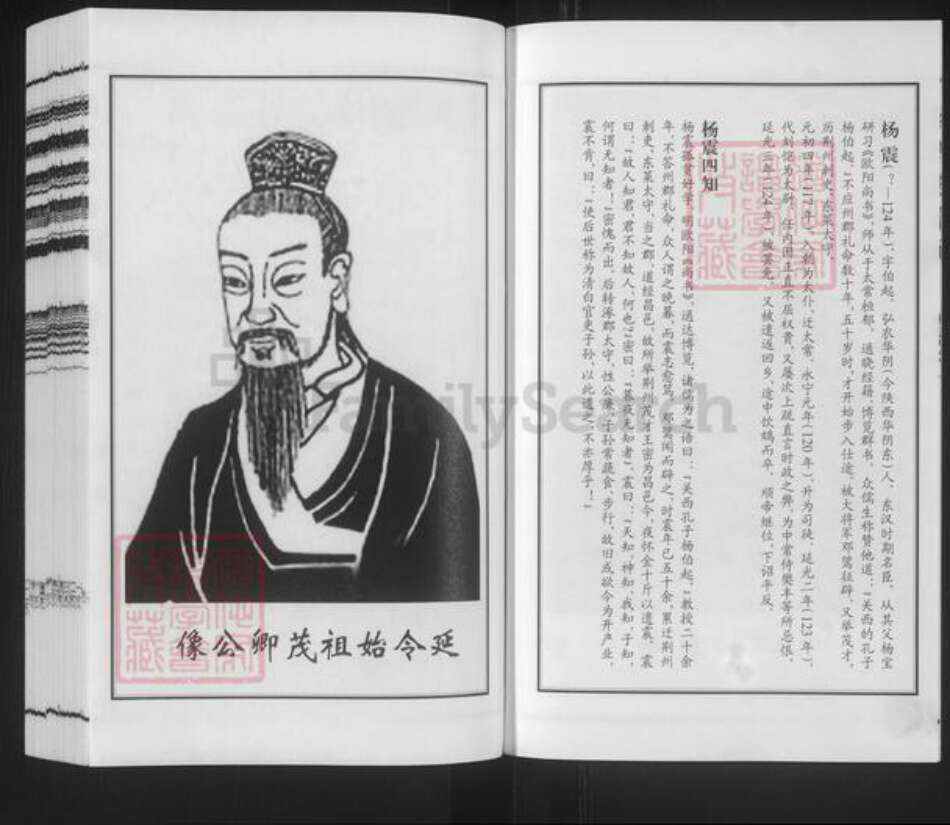 杨震(?—124年),字伯起。弘农华阴(今陕西华阴东)人、东汉时期名臣。从其父杨宝
研习《欧阳尚书》,师从于太常桓郁。通晓经籍、博览群书。众儒生称赞他道:“关西的孔子
杨伯起。”不应州郡礼命数十年,五十岁时,才开始步入仕途。被大将军邓骘征辟,又举茂才,
历荆州刺史、东莱太守。
元初四年(117年),入朝为太仆,迁太常。永宁元年(120年),升为司徒。延光二年(123年),
代刘恺为太尉。任内因正直不屈权贵,又屡次上疏直言时政之弊,为中常侍樊丰等所忌恨。
延光三年(124年),被罢免。又被遣返回乡,途中饮鸩而卒。顺帝继位,下诏平反。
杨震四知
杨震孤贫好学,明欧阳《尚书》,通达博览,诸儒为之语曰:“关西孔子杨伯起。”教授二十余
年,不答州郡礼命,众人谓之晚暮,而震志愈笃。邓骘闻而辟之,时震年已五十余,累迁荆州
刺史、东莱太守。当之郡,道经昌邑,故所举荆州茂才王密为昌邑令,夜怀金十斤以遗震。震
曰:“故人知君,君不知故人,何也?”密曰:“暮夜无知者”。震曰:“天知,神知,我知,子知,
何谓无知者!”密愧而出。后转涿郡太守。性公廉,子孙常蔬食、步行,故旧或欲令为开产业,
震不肯,曰:“使后世称为清白吏子孙,以此遗之,不亦厚乎!”
延令始祖茂卿公像
FamilySearch